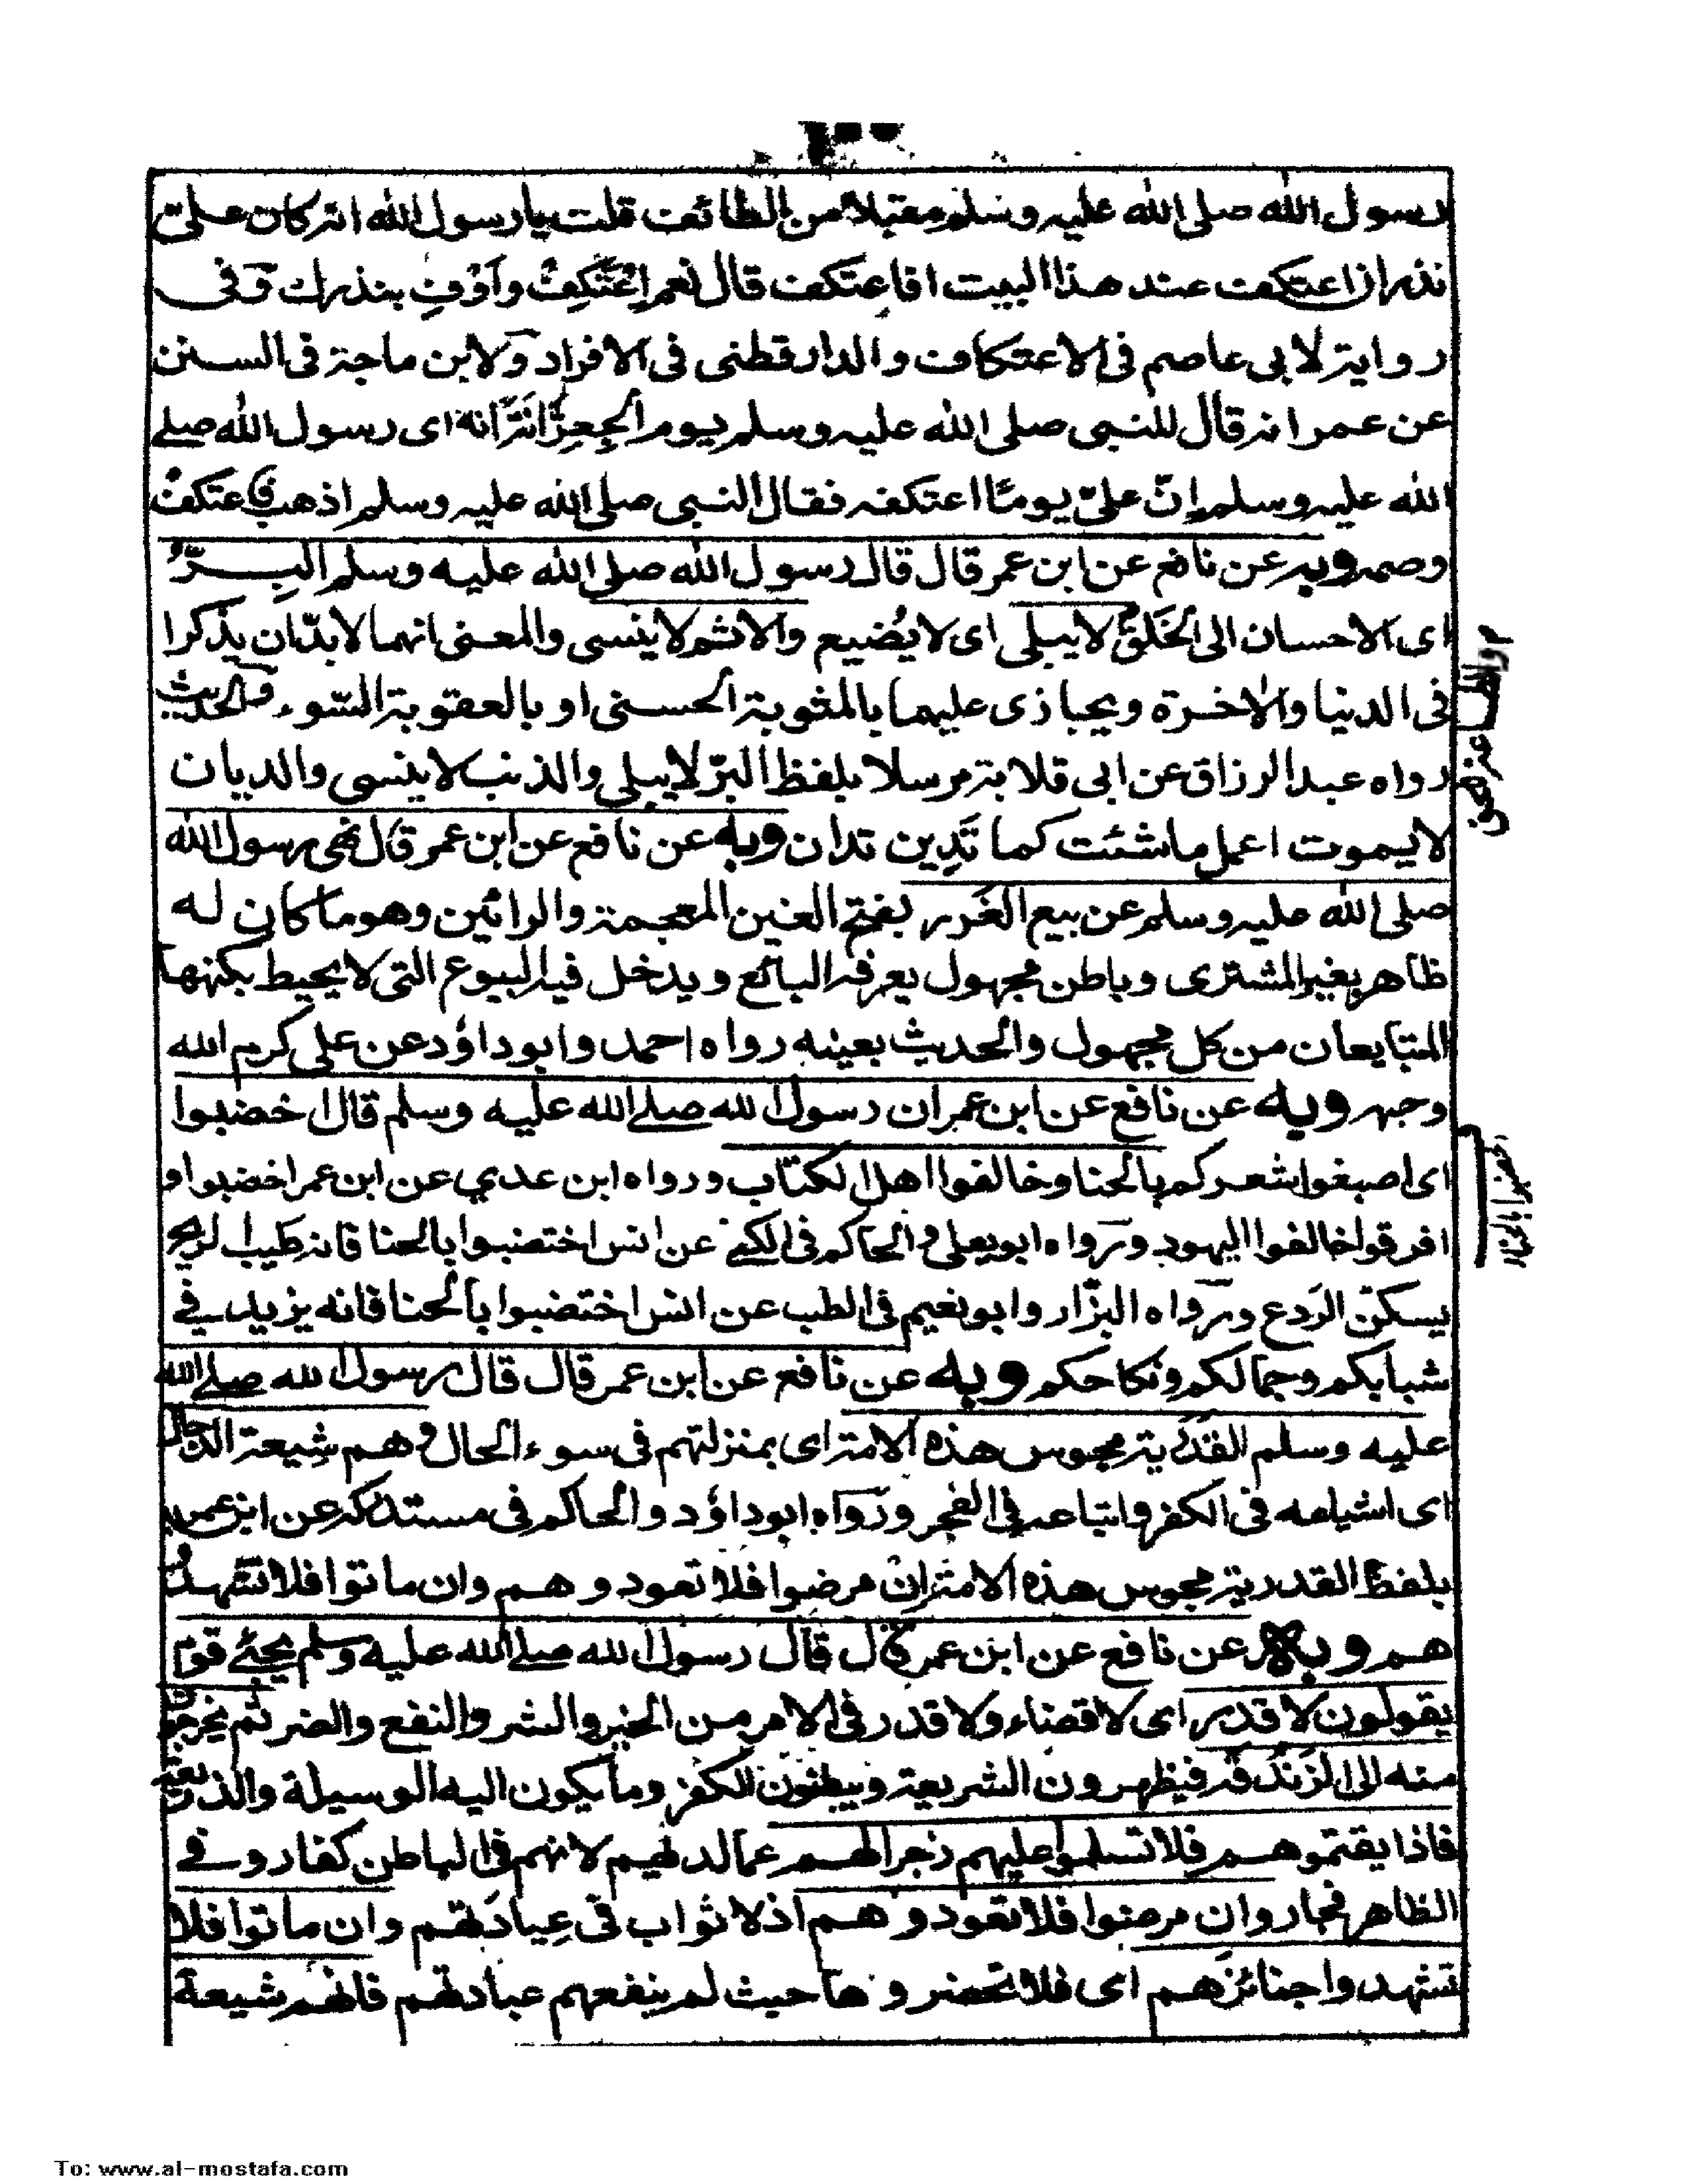 رسول الله صلى الله عليه وسلم مقبلا من الطائف قلت يا رسول الله انه كان علىّ
نذر ان اعتكف عند هذا البيت افاعتكف قال نعم اِعْتَكِفْ واَوْفِ بنذرك وفى
رواية لابى عاصم فى الاعتكاف والدارقطنى فى الافراد ولابن ماجة فى السنن
عن عمر انه قال للنبى صلى الله عليه وسلم يوم الجِعِرَّانة اى رسول الله صلے
الله عليه وسلم اِنّ علىّ يومًا اعتكفه فقال النبى صلى الله عليه وسلم اذهب فاعتكف
وصمه وبه عن نافع عن ابن عمر قال قال رسول الله صلى الله عليه وسلم البِرُّ
اى الاحسان الى الخَلق لا يبلى اى لا يُضيع والاثم لا ينسى والمعنى انهما لا بدّان يذكرا
فى الدنيا والاخرة ويجازى عليهما بالمثوبة الحسنى او بالعقوبة السّوء والحديث
رواه عبد الرزاق عن ابى قلابة مرسلا بلفظ البرّ لا يبلى والذنب لا ينسى والديان
لا يموت اعمل ما شئت كما تَدِين تدان وبه عن نافع عن ابن عمر قال نهى رسول الله
صلى الله عليه وسلم عن بيع الغَرر بفتح الغين المعجمة والرائين وهو ما كان له
ظاهر يغير المشترى وباطن مجهول يعرفه البائع ويدخل فيه البيوع التى لا يحيط بكنهها
المتبايعان من كل مجهول والحديث بعينه رواه احمد وابو داؤد عن على كرم الله
وجهه وبه عن نافع عن ابن عمر ان رسول الله صلے الله عليه وسلم قال اخضبوا
اى اصبغوا شعركم بالحنا وخالفوا اهل الكتاب ورواه ابن عدي عن ابن عمر اخضبوا و
افرقوا خالفوا اليهود ورواه ابو يعلى والحاكم فى الكنى عن انس اختضبوا بالحنا فانه طيب الريح
يسكن الرَدع ورواه البزّار وابو نعيم فى الطب عن انس اختضبوا بالحنا فانه يزيد فے
شبابكم وجمالكم ونكاحكم وبه عن نافع عن ابن عمر قال قال رسول الله صلے الله
عليه وسلم القَدَرية مجوس هذه الامة اى بمنزلتهم فى سوء الحال وهم شِيعة الدجال
اى اشياعه فى الكفر واتباعه فى الفجر ورواه ابو داؤد والحاكم فى مستدركه عن ابن عمر
بلفظ القدرية مجوس هذه الامة ان مرضوا فلا تعود وهم وان ماتوا فلا تشهدو
هم وبه عن نافع عن ابن عمر قال قال رسول الله صلے الله عليه وسلم يجئ قوم
يقولون لا قدر اى لا قضاء ولا قدر فى الامر من الخير والشر والنفع والضر ثم يخرجون
منه الى الزَندَقة فيظهرون الشريعة ويبطنون الكفر وما يكون اليه الوسيلة والذريعة
فاذا لقيتموهم فلا تسلموا عليهم زجرا لهم عما لديهم لانهم فى الباطن كفار وفے
الظاهر فجار وان مرضوا فلا تعود وهم اذ لا ثواب فى عِيادَتهم وان ماتوا فلا
تشهدوا جنائزهم اى فلا تحضر وها حيث لم ينفعهم عبادتهم فانهم شيعة
To: www.al-mostafa.com